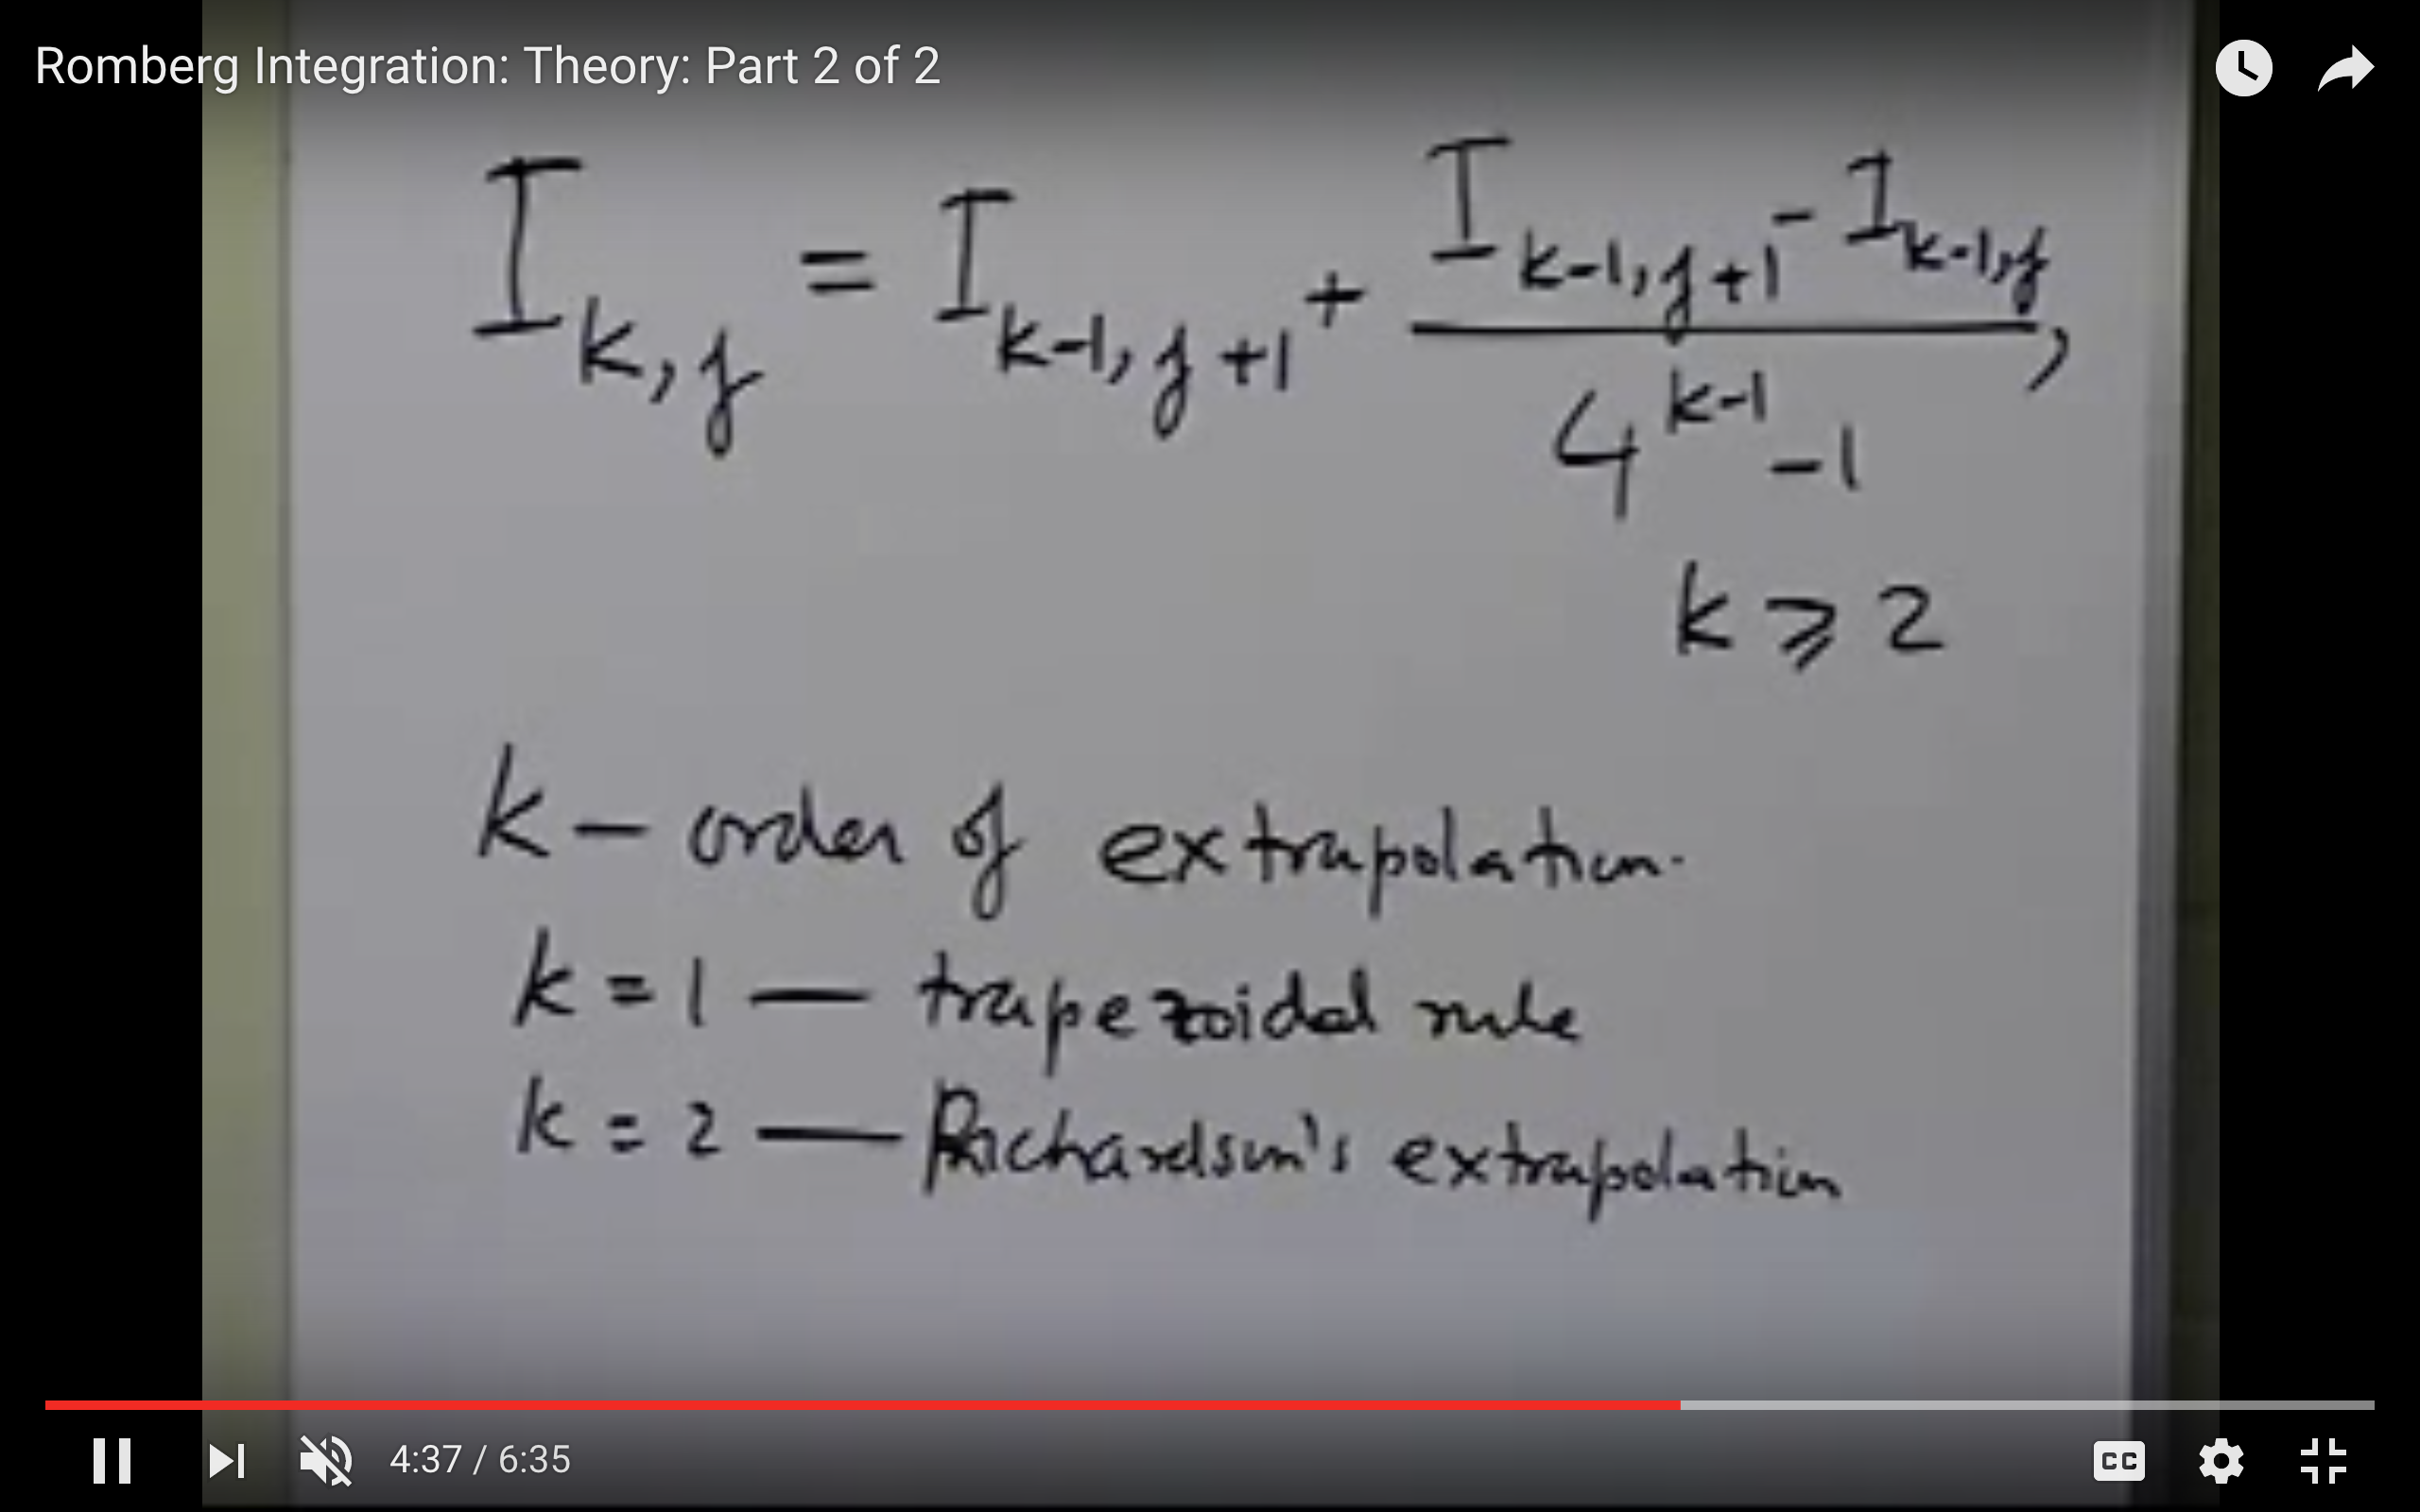 Romberg Integration: Theory: Part 2 of 2
I_{k,j} = I_{k-1,j+1} + \frac{I_{k-1,j+1} - I_{k-1,j}}{4^{k-1} - 1},
k ⩾ 2
k — order of extrapolation.
k = 1 — trapezoidal rule
k = 2 — Richardson's extrapolation
4:37 / 6:35
CC